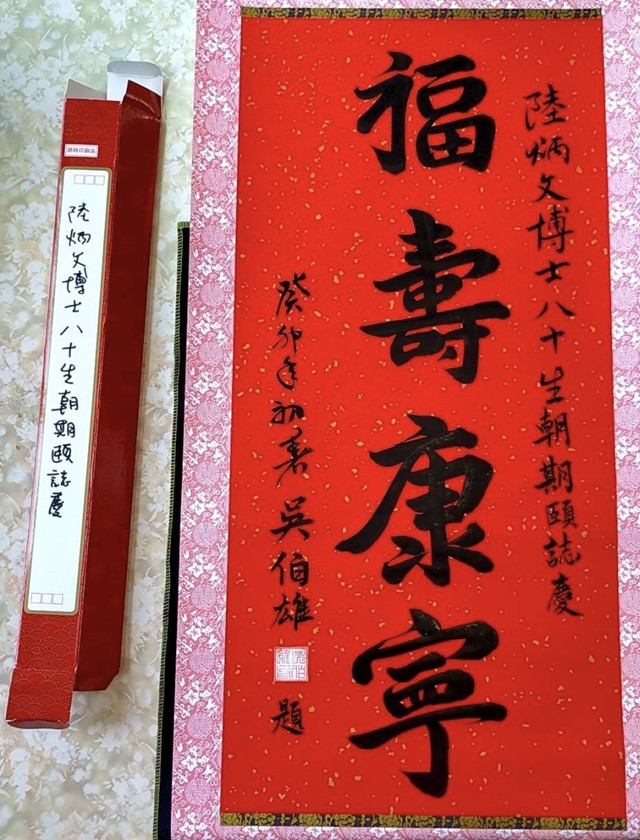 陸炳文博士八十生朝期頤誌慶
福壽康寧
癸卯年初春 吳伯雄
題
陸炳文博士八十生朝期頤誌慶